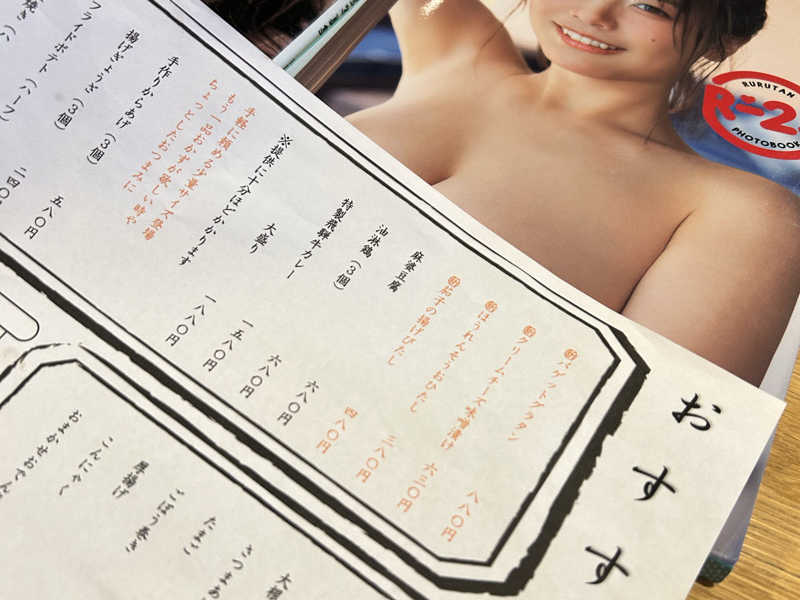 RURUTAN
R-2
PHOTOBOOK
おすす
㊕ヌゲットグラタン 八八〇円
㊕クリームチーズ味噌漬け 六三〇円
㊕ほうれんそうおひたし 三八〇円
㊕茄子の揚げびたし 四八〇円
麻婆豆腐
油淋鶏(3個) 六八〇円
特製飛騨牛カレー 六八〇円
大盛り 一五八〇円
※提供に十分ほどかかります 一八〇円
手軽に頼める少量サイズ登場
もう一品おかずが欲しい時や
ちょっとしたおつまみに
手作りからあげ(3個)
揚げぎょうざ(3個) 五八〇円
フライドポテト(ハーフ) 二四〇
焼き(ハ
大根
さつまあ
たまご
ごぼう巻き
厚揚げ
こんにゃく
おまかせおでん